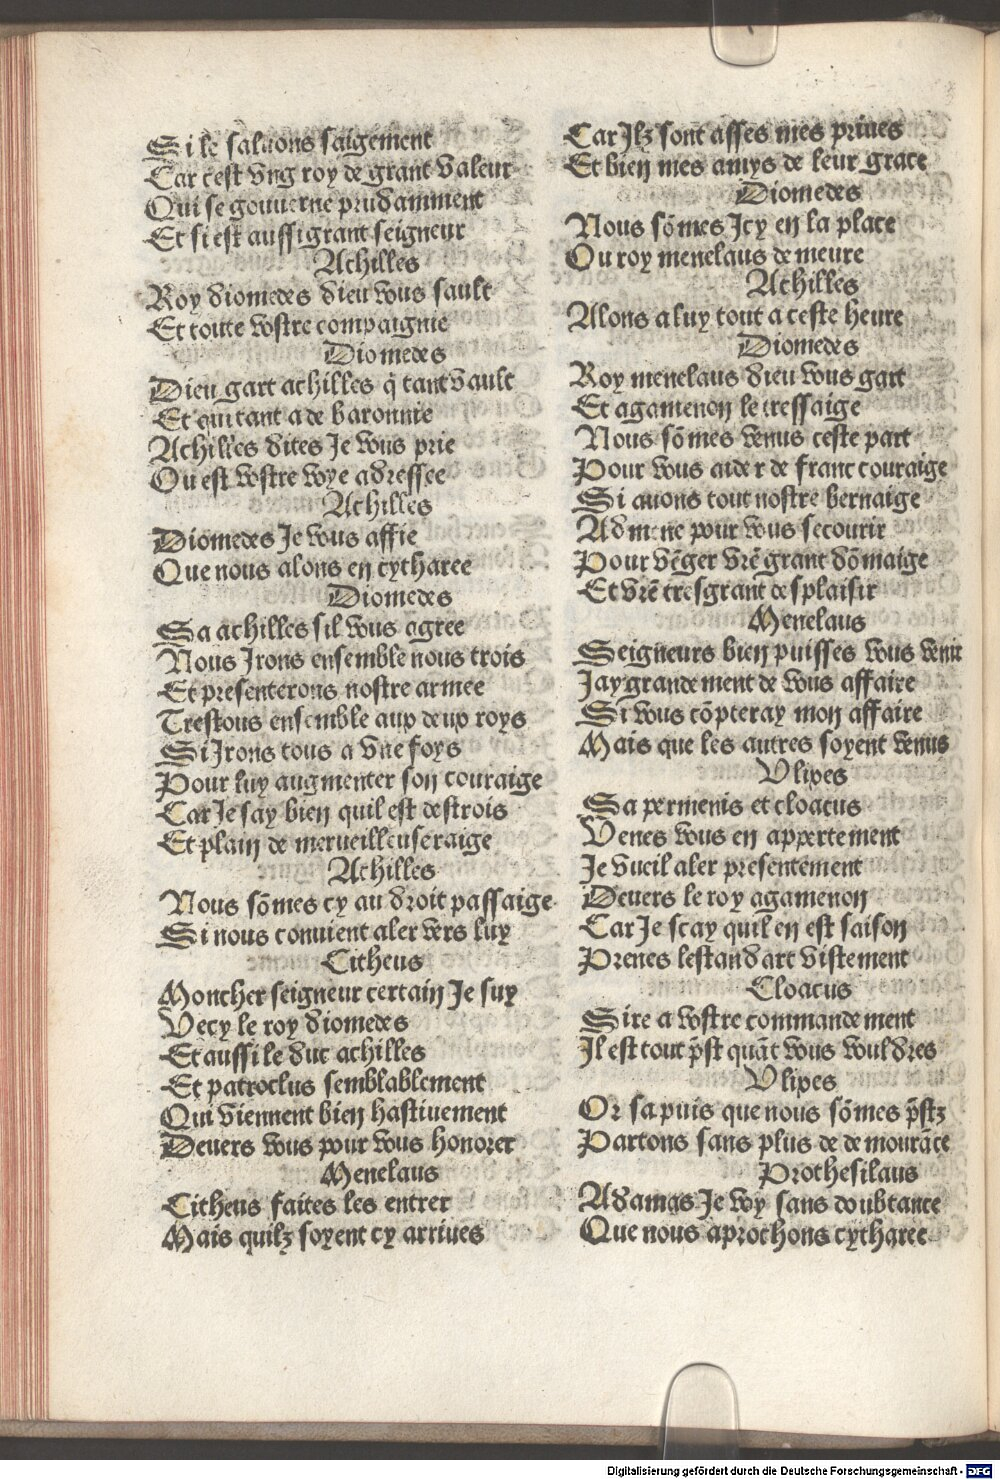 Si le saluons saigement
Car cest vng roy de grant valeur
Qui se gouuerne prudamment
Et si est aussi grant seigneur
Achilles
Roy diomedes dieu vous sault
Et toute vostre compaignie
Diomedes
Dieu gart achilles q̄ tant vault
Et qui tant a de baronnie
Achilles dites Je vous prie
Ou est vostre voye adressee
Achilles
Diomedes Je vous affie
Que nous alons en cytharee
Diomedes
Sa achilles sil vous agree
Nous Jrons ensemble nous trois
Et presenterons nostre armee
Trestous ensemble aux deux roys
Si Jrons tous a vne foys
Pour luy augmenter son couraige
Car Je say bien quil est destrois
Et plain de merueilleuse raige
Achilles
Nous sōmes cy au droit passaige
Si nous conuient aler vers luy
Citheus
Moncher seigneur certain Je suy
Vecy le roy diomedes
Et aussi le duc achilles
Et patroclus semblablement
Qui viennent bien hastiuement
Deuers vous pour vous honorer
Menelaus
Citheus faites les entrer
Mais quilz soyent cy arriues
Car Jlz sont asses mes priues
Et bien mes amys de leur grace
Diomedes
Nous sōmes Jcy en la place
Ou roy menelaus demeure
Achilles
Alons a luy tout a ceste heure
Diomedes
Roy menelaus dieu vous gart
Et agamenon le tressaige
Nous sōmes venus ceste part
Pour vous aider de franc couraige
Si auons tout nostre bernaige
Admene pour vous secourir
Pour vēger vrē grant dōmaige
Et vrē tresgrant desplaisir
Menelaus
Seigneurs bien puisses vous venir
Jay grandement de vous affaire
Si vous cōpteray mon affaire
Mais que les autres soyent venus
Vlixes
Sa permenis et cloacus
Venes vous en appertement
Je vueil aler presentement
Deuers le roy agamenon
Car Je scay quil en est saison
Prenes lestandart vistement
Cloacus
Sire a vostre commandement
Jl est tout p̄st quāt vous vouldres
Vlixes
Or sa puis que nous sōmes p̄stz
Partons sans plus de demourāce
Prothesilaus
Adamas Je voy sans doubtance
Que nous aprochons cytharee
Digitalisierung gefördert durch die Deutsche Forschungsgemeinschaft - DFG